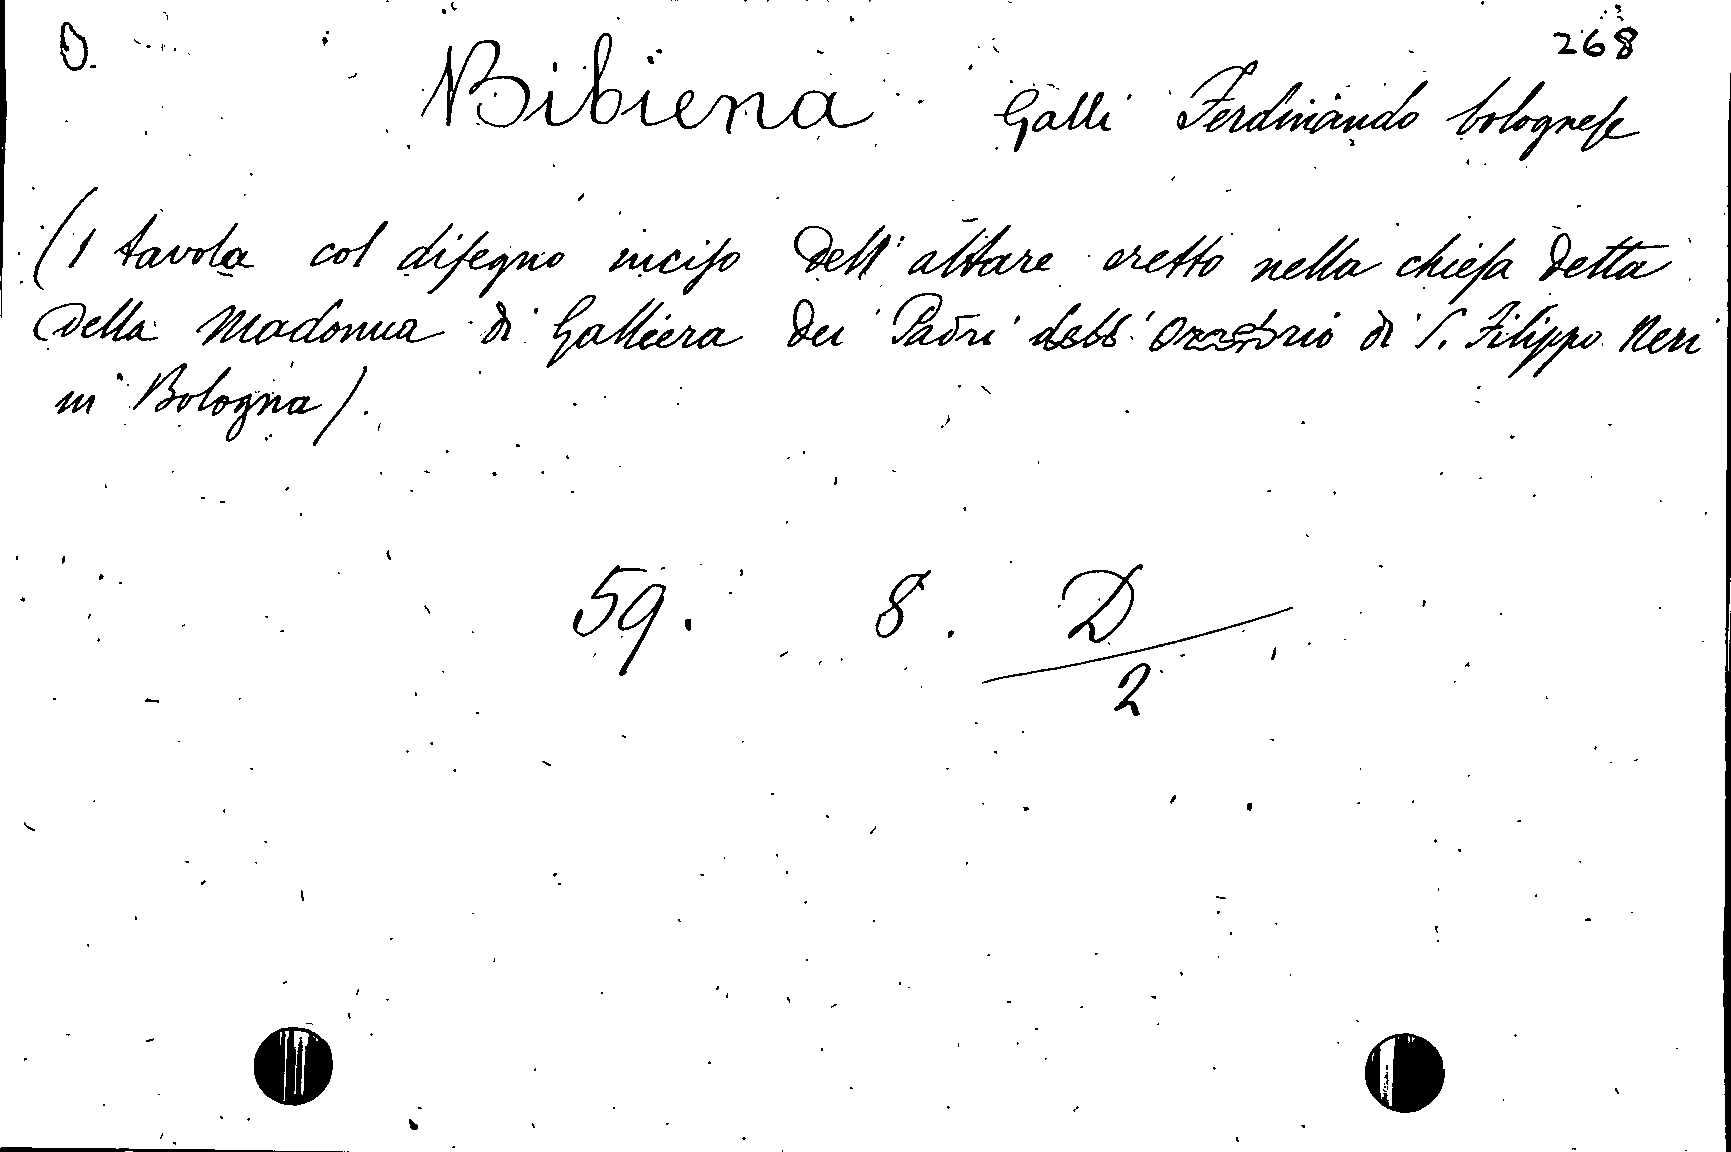 O. 268
Bibiena Galli Ferdinando bolognese
(1 tavola col disegno inciso dell'altare eretto nella chiesa detta
della Madonna di Galliera dei Padri dell'Oratorio di S. Filippo Neri
in Bologna).
59. 8. D
2